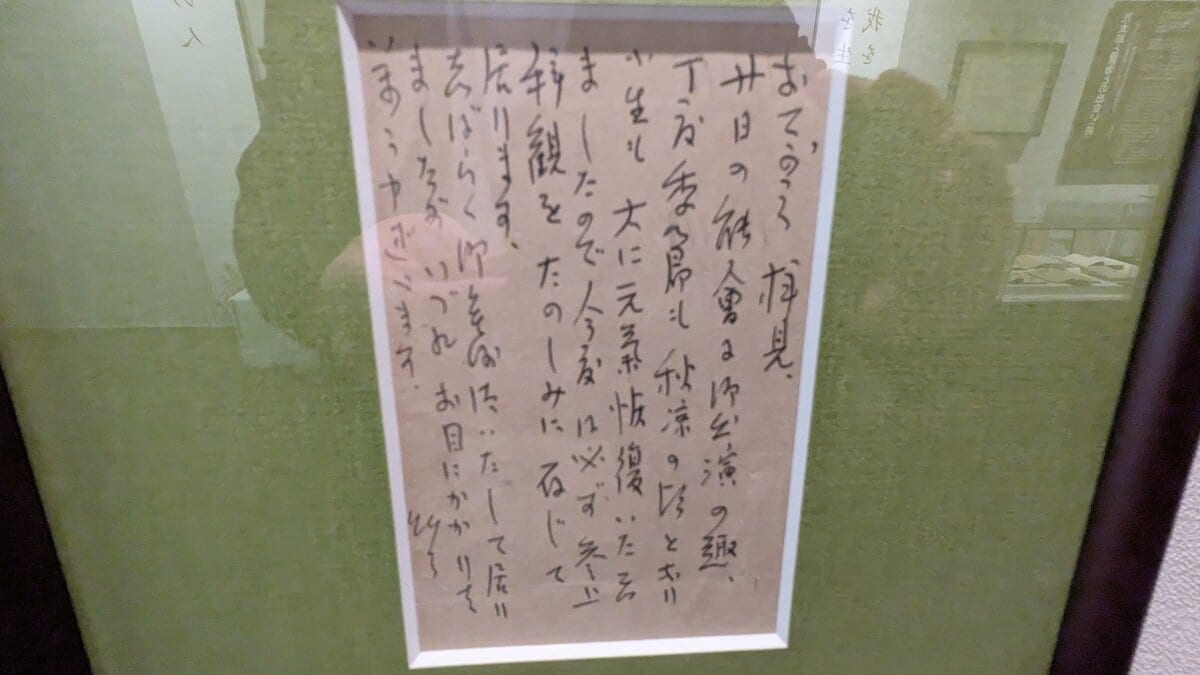 おてがみ 拝見、
廿日の能會に御出演の趣、
丁度季節も秋凉の となり
小生も大に元氣恢復いたし
ましたので今度は必ず参上
拝観をたのしみに存じて
居ります、
しばらく御無沙汰いたして居り
ましたが いづれお目にかかり
申述べます、
艸々